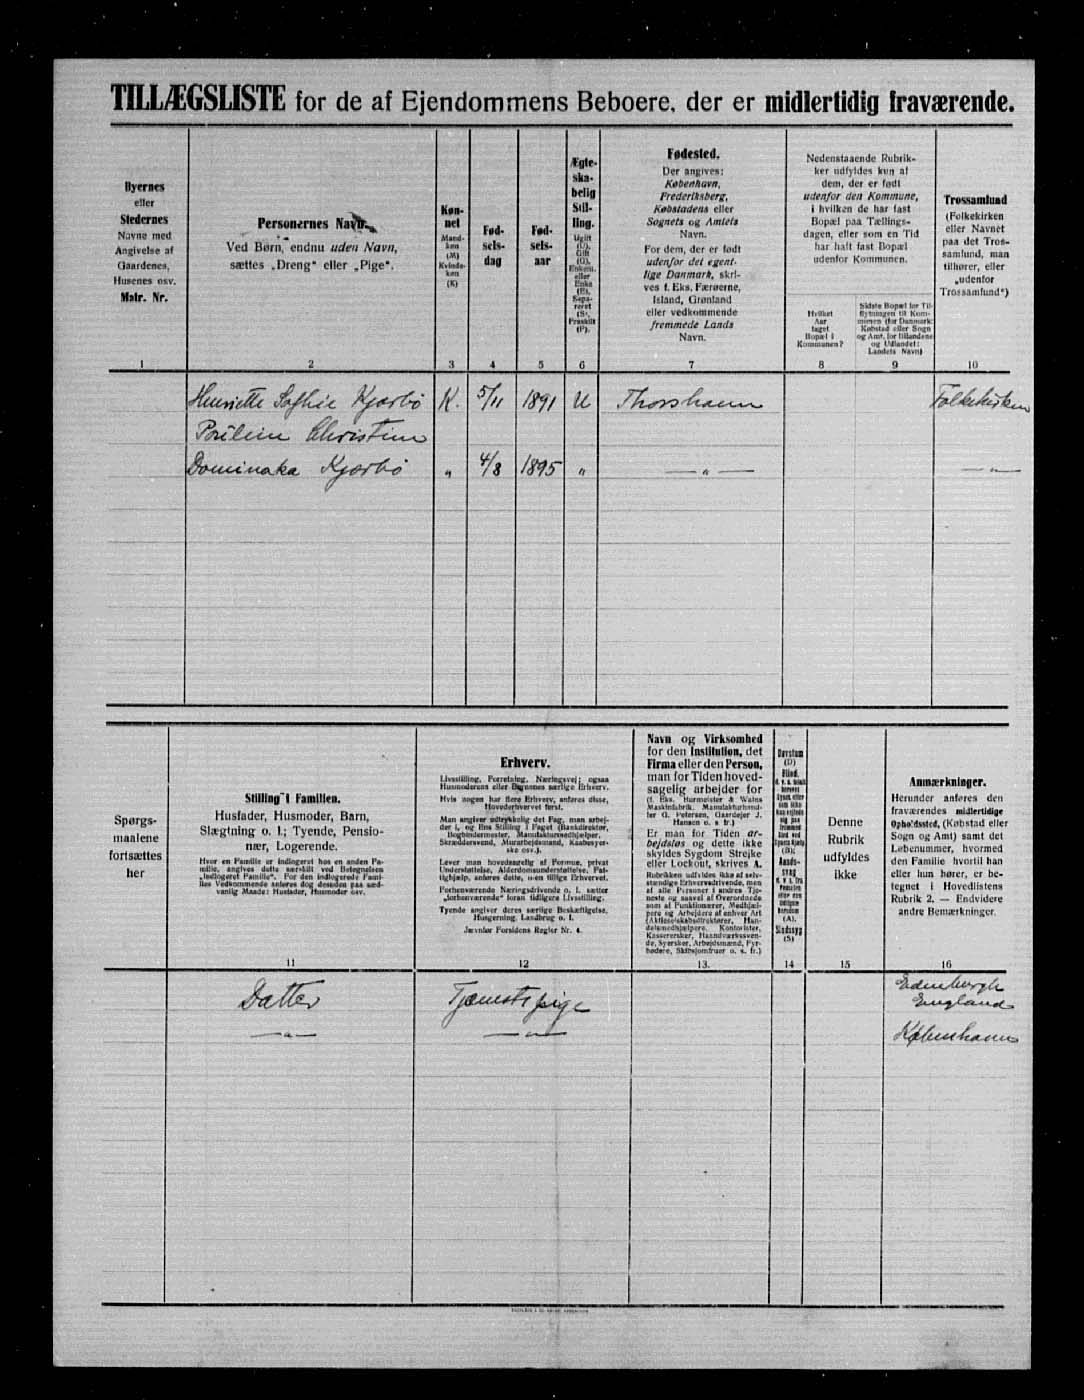 TILLÆGSLISTE for de af Ejendommens Beboere, der er midlertidig fraværende.
Byernes
eller
Stedernes
Navne med
Angivelse af
Gaardenes,
Husenes osv.
Matr. Nr.
1
Personernes Navn.
Ved Børn, endnu uden Navn,
sættes „Dreng“ eller „Pige“.
2
Køn-
net
Mand-
køn
(M)
Kvinde-
køn
(K)
3
Fød-
sels-
dag
4
Fød-
sels-
aar
5
Ægte-
ska-
belig
Stil-
ling.
Ugift
(U),
Gift
(G),
Enkem.
eller
Enke
(E),
Sepa-
reret
(S),
Fraskilt
(F).
6
Fødested.
Der angives:
København,
Frederiksberg,
Købstadens eller
Sognets og Amtets
Navn.
For dem, der er født
udenfor det egent-
lige Danmark, skri-
ves f. Eks. Færøerne,
Island, Grønland
eller vedkommende
fremmede Lands
Navn.
7
Nedenstaaende Rubrik-
ker udfyldes kun af
dem, der er født
udenfor den Kommune,
i hvilken de har fast
Bopæl paa Tællings-
dagen, eller som en Tid
har haft fast Bopæl
udenfor Kommunen.
Hvilket
Aar
taget
Bopæl i
Kommunen?
8
Sidste Bopæl før Til-
flytningen til Kom-
munen (for Danmark:
Købstad eller Sogn
og Amt, for Bilandene
og Udlandet:
Landets Navn)
9
Trossamfund
(Folkekirken
eller Navnet
paa det Tros-
samfund, man
tilhører, eller
„udenfor
Trossamfund“)
10
Henriette Sofhie Kjærbö K. 5/11 1891 U Thorshavn Folkekirken
Pouline Christine
Dominaka Kjærbö „ 4/8 1895 „ — „ — — „ —
Spørgs-
maalene
fortsættes
her
Stilling i Familien.
Husfader, Husmoder, Barn,
Slægtning o. l.; Tyende, Pensio-
nær, Logerende.
Hvor en Familie er indlogeret hos en anden Fa-
milie, angives dette særskilt ved Betegnelsen
„indlogeret Familie“. For den indlogerede Fami-
lies Vedkommende anføres dog desuden paa sæd-
vanlig Maade: Husfader, Husmoder osv.
11
Erhverv.
Livsstilling, Forretning, Næringsvej; ogsaa
Husmoderens eller Børnenes særlige Erhverv.
Hvis nogen har flere Erhverv, anføres disse,
Hovederhvervet først.
Man angiver udtrykkelig det Fag, man arbej-
der i, og Ens Stilling i Faget (Bankdirektør,
Bogbindermester, Manufakturmedhjælper,
Skræddersvend, Murarbejdsmand, Kaabesyer-
ske osv.).
Lever man hovedsagelig af Formue, privat
Understøttelse, Alderdomsunderstøttelse, Fat-
tighjælp, anføres dette, uden tillige Erhvervet.
Forhenværende Næringsdrivende o. l. sætter
„forhenværende“ foran tidligere Livsstilling.
Tyende angiver deres særlige Beskæftigelse,
Husgerning, Landbrug o. l.
Jævnfør Forsidens Regler Nr. 4.
12
Navn og Virksomhed
for den Institution, det
Firma eller den Person,
man for Tiden hoved-
sagelig arbejder for
(f. Eks. Burmeister & Wains
Maskinfabrik, Manufakturhand-
ler G. Petersen, Gaardejer J.
Hansen o. s. fr.)
Er man for Tiden ar-
bejdsløs og dette ikke
skyldes Sygdom Strejke
eller Lockout, skrives A.
Rubrikken udfyldes ikke af selv-
stændige Erhvervsdrivende, men
af alle Personer i andres Tje-
neste og saavel af Overordnede
som af Funktionærer, Medhjæl-
pere og Arbejdere af enhver Art
(Aktieselskabsdirektører, Han-
delsmedhjælpere, Kontorister,
Kasserersker, Haandværkssven-
de, Syersker, Arbejdsmænd, Fyr-
bødere, Skibsjomfruer o. s. fr.)
13.
Døvstum
(D)
Blind,
Aands-
svag
(A).
Sindssyg
(S)
14
Denne
Rubrik
udfyldes
ikke
15
Anmærkninger.
Herunder anføres den
fraværendes midlertidige
Opholdssted, (Købstad eller
Sogn og Amt) samt det
Løbenummer, hvormed
den Familie hvortil han
eller hun hører, er be-
tegnet i Hovedlistens
Rubrik 2. — Endvidere
andre Bemærkninger.
16
Datter Tjenestepige Edenburgh
England
— „ — — „ — København